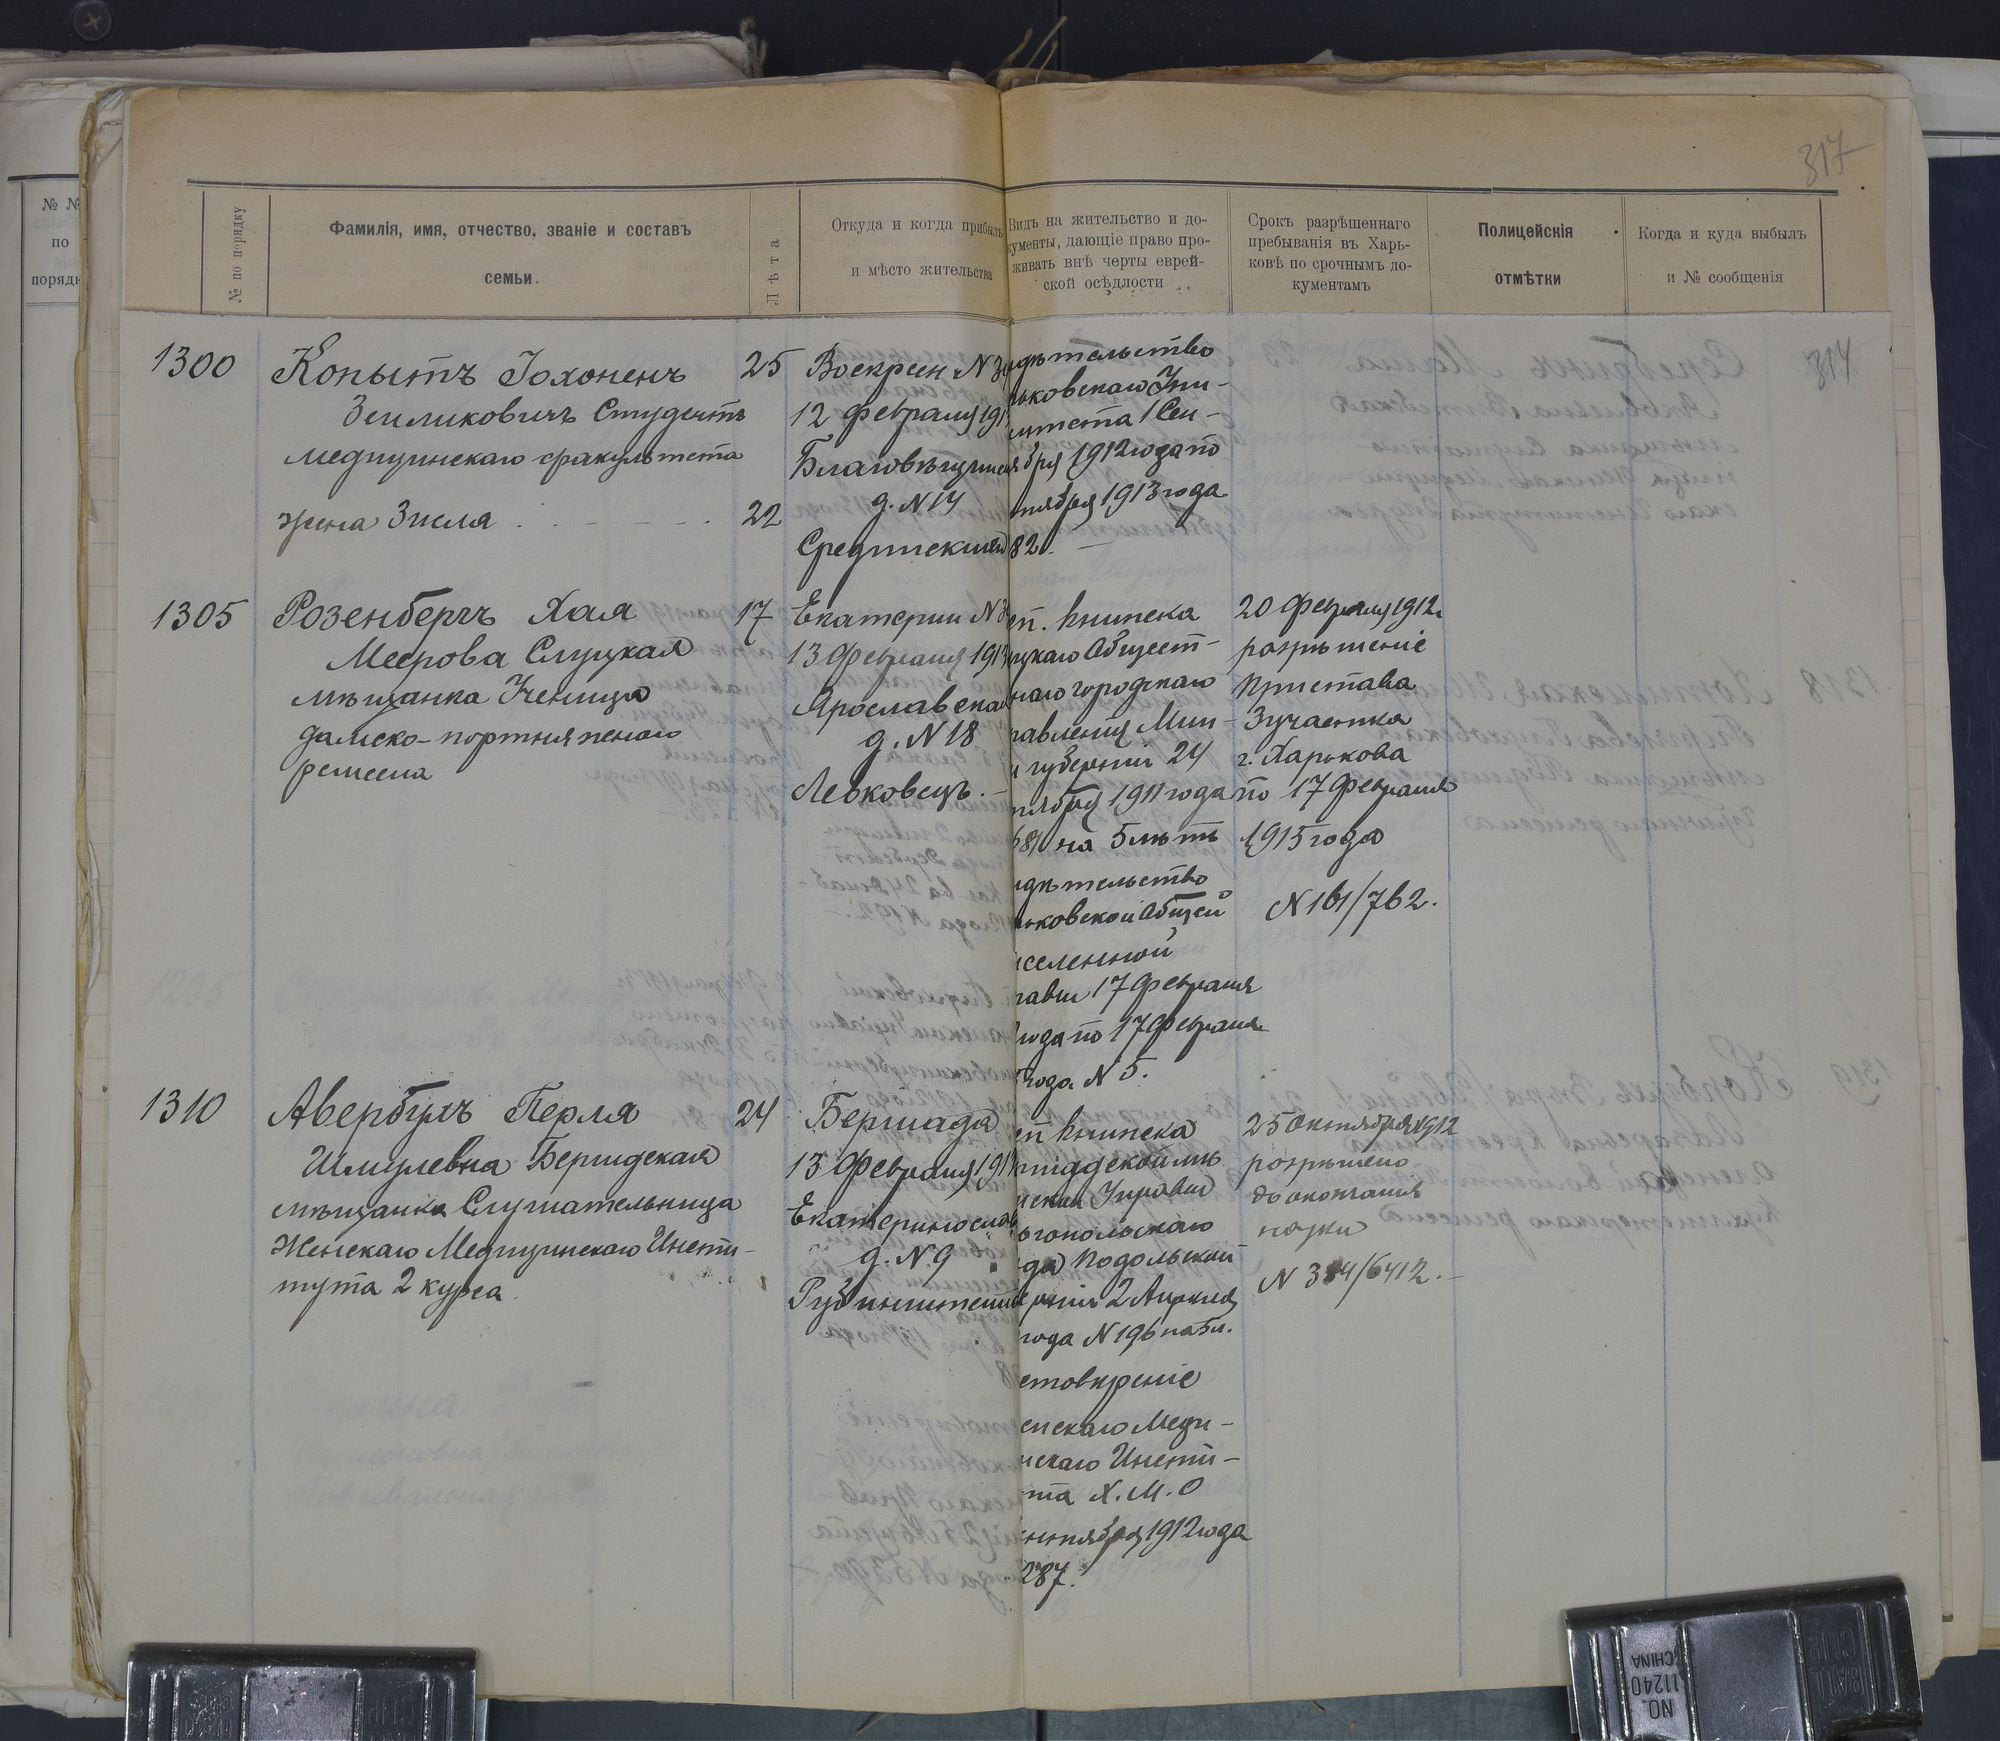 317
№ по порядку
Фамилія, имя, отчество, званіе и составъ
семьи.
Лѣта
Откуда и когда прибылъ
и мѣсто жительства
Видъ на жительство и до-
кументы, дающіе право про-
живать внѣ черты еврей-
ской осѣдлости
Срокъ разрѣшеннаго
пребыванія въ Харь-
ковѣ по срочнымъ до-
кументамъ
Полицейскія
отмѣтки
Когда и куда выбылъ
и № сообщенія
№ №
по
порядк
1300
Копытъ Іохоненъ
Зеиликовичъ Студентъ
медицинскаго факультета
жена Зисля
25
22
Воскресен N 3
12 февраля 191
Благовѣщенск
д. N 14
Срединский
идѣтельство
рьковскаго Уни-
ситета 1 Сен-
бря 1912 года по
нтября 1913 года
82. —
1305
Розенбергъ Хая
Меерова Слуцкая
мѣщанка Ученица
дамско-портняжнаго
ремесла
17
Екатерин N 3
13 Февраля 1913
Ярославская
д. N 18
Левковецъ. —
сп. книжка
уцкаго Общест-
наго городскаго
равленія Мин-
й губерніи 24
нтября 1911 года
681 на 5 лѣтъ
идѣтельство
рьковской Общей
еселенной
равы 17 Февраля
года по 17 Февраля
года N 5.
20 Февраля 1912
разрѣшеніе
Пристава
3 участка
г. Харькова
по 17 Февраля
1915 года
N 161/762.
1310
Авербухъ Перля
Шмулевна Бершадская
мѣщанка Слушательница
Женскаго Медицинскаго Инсти-
тута 2 курса
24
Бершада
13 Февраля 191
Екатеринослав
д. N 9
Рубинштейн
сп книжка
ршадской мѣ
нской Управы
ьгопольскаго
да Подольской
ерніи 2 Апреля
года N 196 на 5 л.
стовѣреніе
енскаго Меди-
нскаго Инсти-
та Х. М. О
ентября 1912 года
287.
25 Октября 1912
разрѣшено
до окончанія
науки
N 384/6412. —